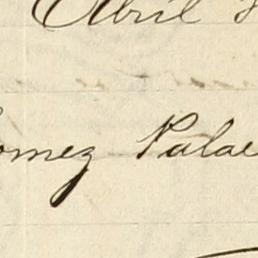 Abril
omez Palae